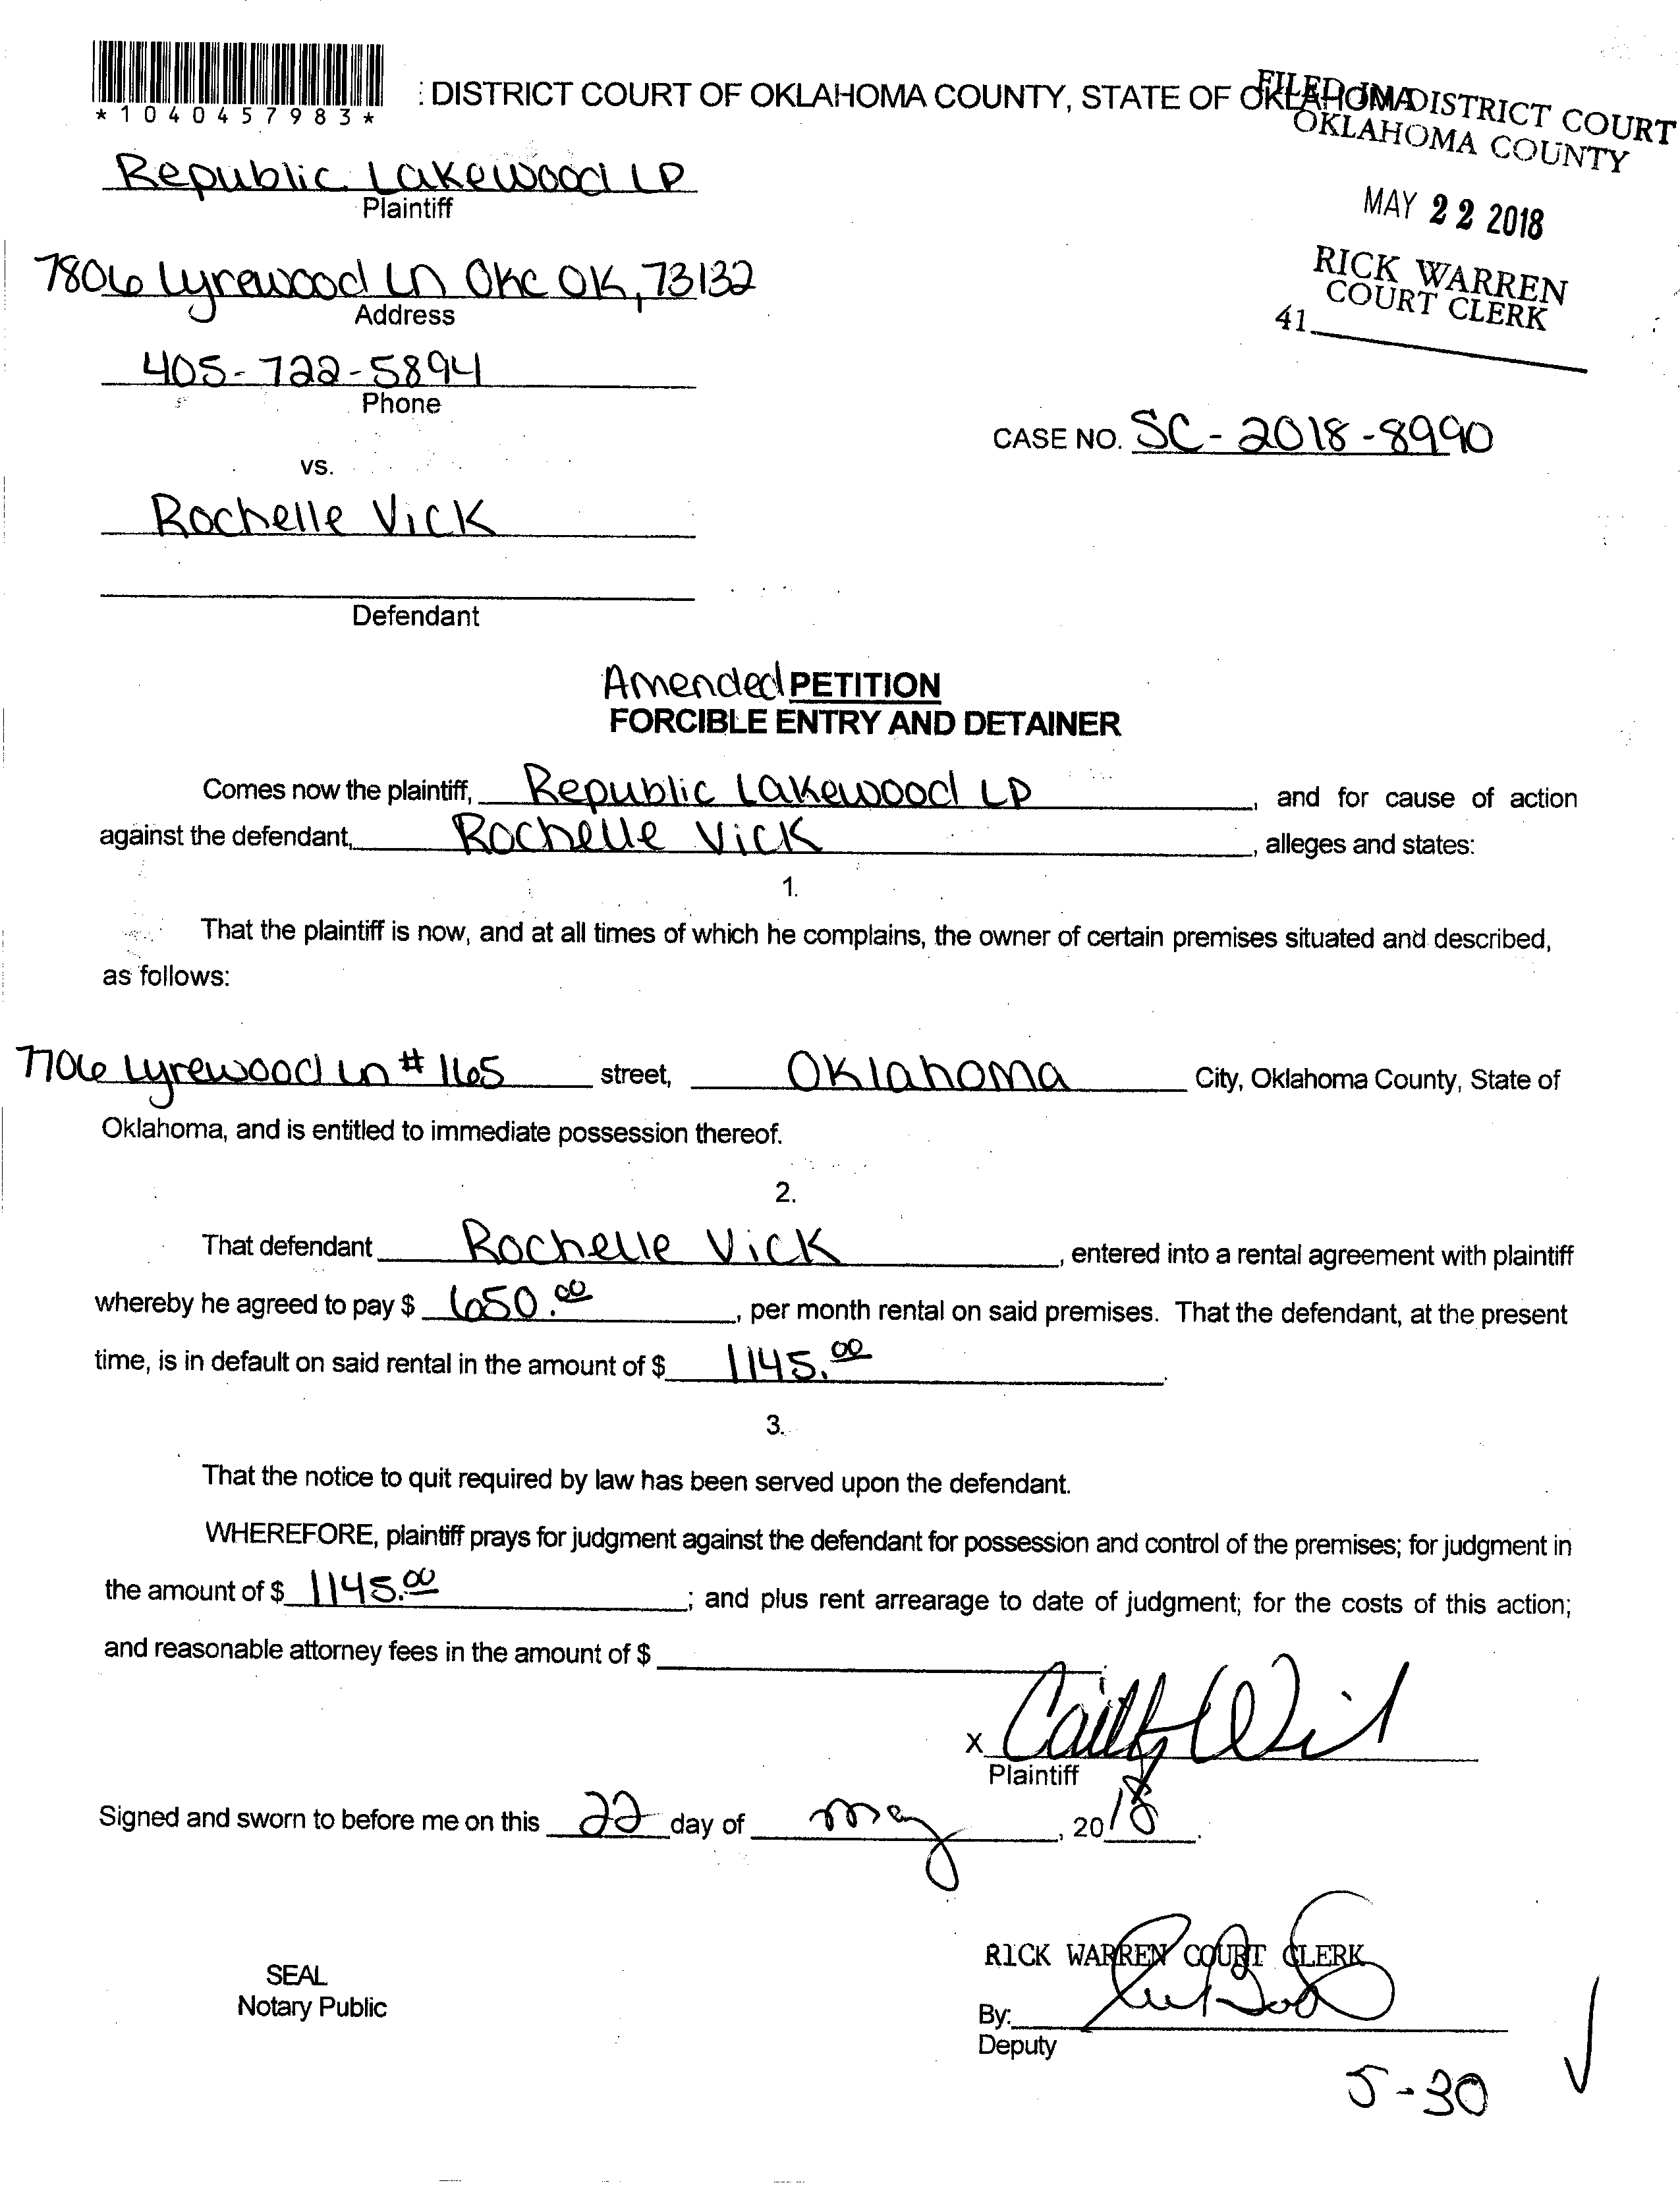 *1040457983*
: DISTRICT COURT OF OKLAHOMA COUNTY, STATE OF OKLAHOMA
FILED IN DISTRICT COURT
OKLAHOMA COUNTY
MAY 22 2018
RICK WARREN
COURT CLERK
41
Republic Lakewood LP
Plaintiff
7806 Lyrewood Ln Okc OK, 73132
Address
405-722-5894
Phone
CASE NO. SC-2018-8990
vs.
Rochelle Vick
Defendant
Amended PETITION
FORCIBLE ENTRY AND DETAINER
Comes now the plaintiff, Republic Lakewood LP, and for cause of action
against the defendant, Rochelle Vick, alleges and states:
1.
That the plaintiff is now, and at all times of which he complains, the owner of certain premises situated and described,
as follows:
7706 Lyrewood Ln #165 street, Oklahoma City, Oklahoma County, State of
Oklahoma, and is entitled to immediate possession thereof.
2.
That defendant Rochelle Vick, entered into a rental agreement with plaintiff
whereby he agreed to pay $ 650.00, per month rental on said premises. That the defendant, at the present
time, is in default on said rental in the amount of $ 1145.00.
3.
That the notice to quit required by law has been served upon the defendant.
WHEREFORE, plaintiff prays for judgment against the defendant for possession and control of the premises; for judgment in
the amount of $ 1145.00; and plus rent arrearage to date of judgment; for the costs of this action;
and reasonable attorney fees in the amount of $
X
Plaintiff
Signed and sworn to before me on this 22 day of may, 2018.
RICK WARREN COURT CLERK
SEAL
Notary Public
By:
Deputy
5-30